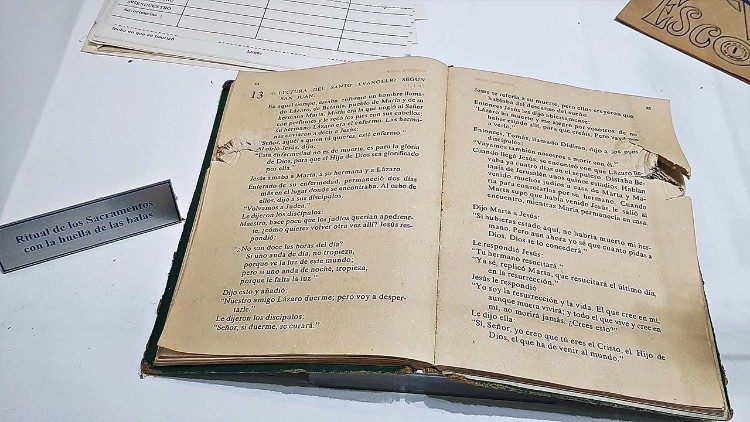 Lugar:
ESCO
Ritual de los Sacramentos
con la huella de las balas
13 LECTURA DEL SANTO EVANGELIO SEGUN
SAN JUAN.
En aquel tiempo, estaba enfermo un hombre llama-
do Lázaro, de Betania, pueblo de María y de su
hermana Marta. María era la que ungió al Señor
con perfumes y le secó los pies con sus cabellos;
su hermano Lázaro era el enfermo. Las herma-
nas enviaron a decir a Jesús:
"Señor, aquel a quien tu quieres, está enfermo."
Al oírlo Jesús, dijo:
"Esta enfermedad no es de muerte, es para la gloria
de Dios, para que el Hijo de Dios sea glorificado
por ella.
Jesús amaba a Marta, a su hermana y a Lázaro.
Enterado de su enfermedad, permaneció dos días
más en el lugar donde se encontraba. Al cabo de
ellos, dijo a sus discípulos:
"Volvamos a Judea."
Le dijeron los discípulos:
Maestro, hace poco que los judíos querían apedrear-
te, ¿cómo quieres volver otra vez allí? Jesús res-
pondió:
"¿No son doce las horas del día?
Si uno anda de día, no tropieza,
porque ve la luz de este mundo;
pero si uno anda de noche, tropieza,
porque le falta la luz"
Dijo esto y añadió:
"Nuestro amigo Lázaro duerme; pero voy a desper-
tarle.
Le dijeron los discípulos:
"Señor, si duerme, se curará."
Jesús se refería a su muerte, pero ellos creyeron que
hablaba del descanso del sueño.
Entonces Jesús les dijo abiertamente:
"Lázaro ha muerto y me alegro por vosotros de no
haber estado allí, para que creáis. Pero vayamos
a verle."
Entonces, Tomás, llamado Dídimo, dijo a los otros
"Vayamos también nosotros a morir con él."
Cuando llegó Jesús, se encontró con que Lázaro lle-
vaba ya cuatro días en el sepulcro. Distaba Be-
tania de Jerusalén unos quince estadios. Habían
judíos a casa de Marta y Ma-
ría para consolarlas por el hermano. Cuando
Marta supo que había venido Jesús, le salió al
encuentro, mientras María permanecía en casa.
Dijo Marta a Jesús:
"Si hubieras estado aquí, no habría muerto mi her-
mano. Pero aun ahora yo sé que cuanto pidas a
Dios, Dios te lo concederá."
Le respondió Jesús:
"Tu hermano resucitará."
"Ya sé, replicó Marta, que resucitará el último día,
en la resurrección."
Jesús le respondió:
"Yo soy la resurrección y la vida. El que cree en mí,
aunque muera vivirá; y todo el que vive y cree en
mí, no morirá jamás. ¿Crees esto?"
Le dijo ella:
"Sí, Señor, yo creo que tú eres el Cristo, el Hijo de
Dios, el que ha de venir al mundo."